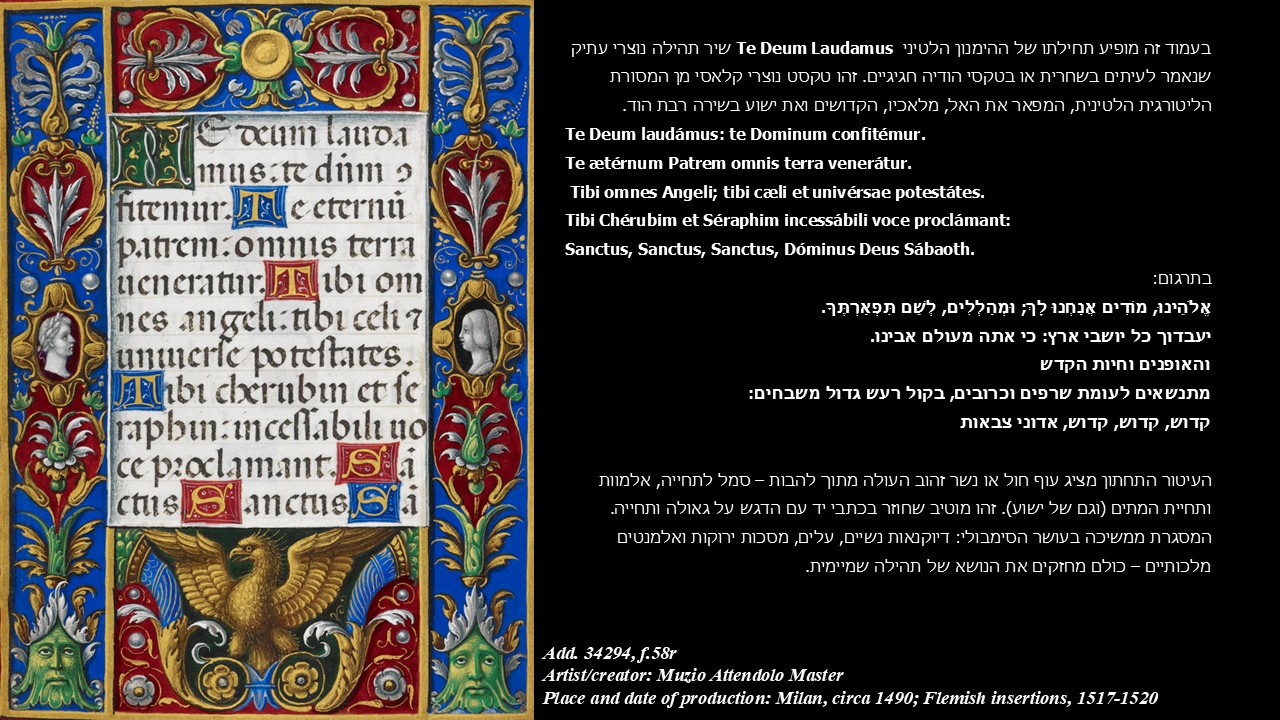 E deum lauda
mus: te dūm ꝯ
fitemur: Te eternū
patrem: omnis terra
ueneratur. Tibi om
nes angeli: tibi celi ⁊
uniuerse potestates.
Tibi cherubin et se
raphin: incessabili uo
ce proclamant. Sā
ctus Sanctus Sā
בעמוד זה מופיע תחילתו של ההימנון הלטיני Te Deum Laudamus שיר תהילה נוצרי עתיק
שנאמר לעיתים בשחרית או בטקסי הודיה חגיגיים. זהו טקסט נוצרי קלאסי מן המסורת
הליטורגית הלטינית, המפאר את האל, מלאכיו, הקדושים ואת ישוע בשירה רבת הוד.
Te Deum laudámus: te Dominum confitémur.
Te ætérnum Patrem omnis terra venerátur.
Tibi omnes Angeli; tibi cæli et univérsae potestátes.
Tibi Chérubim et Séraphim incessábili voce proclámant:
Sanctus, Sanctus, Sanctus, Dóminus Deus Sábaoth.
בתרגום:
אֱלֹהֵינוּ, מוֹדִים אֲנַחְנוּ לָךְ; וּמְהַלְלִים, לְשֵׁם תִּפְאַרְתֶּךָ.
יעבדוך כל יושבי ארץ: כי אתה מעולם אבינו.
והאופנים וחיות הקדש
מתנשאים לעומת שרפים וכרובים, בקול רעש גדול משבחים:
קדוש, קדוש, קדוש, אדוני צבאות
העיטור התחתון מציג עוף חול או נשר זהוב העולה מתוך להבות – סמל לתחייה, אלמוות
ותחיית המתים (וגם של ישוע). זהו מוטיב שחוזר בכתבי יד עם הדגש על גאולה ותחייה.
המסגרת ממשיכה בעושר הסימבולי: דיוקנאות נשיים, עלים, מסכות ירוקות ואלמנטים
מלכותיים – כולם מחזקים את הנושא של תהילה שמיימית.
Add. 34294, f.58r
Artist/creator: Muzio Attendolo Master
Place and date of production: Milan, circa 1490; Flemish insertions, 1517-1520